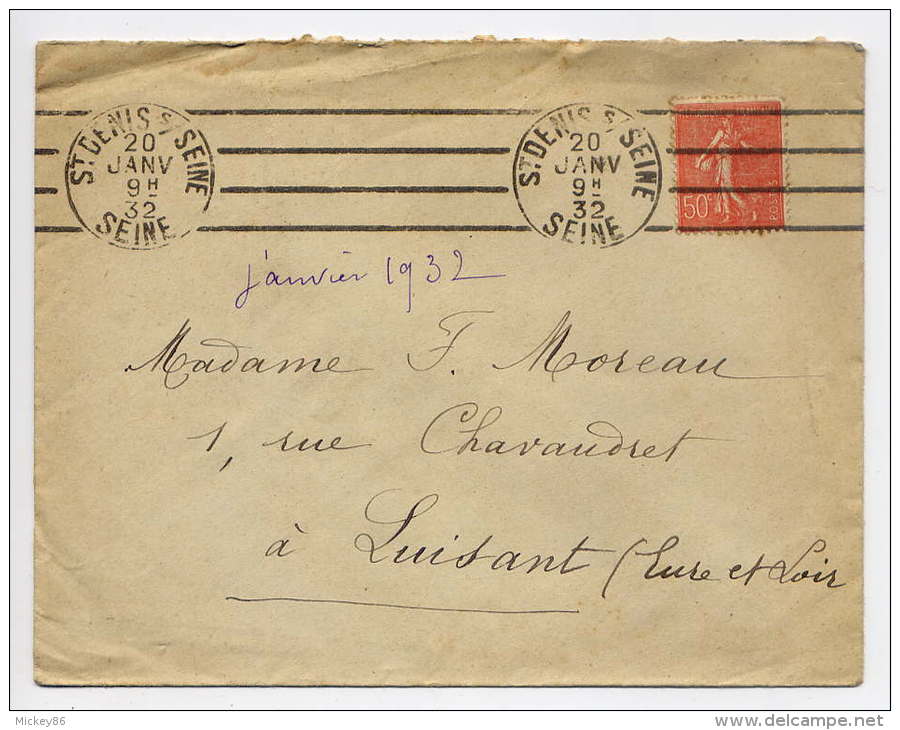 ST DENIS S/SEINE
20
JANV
9H
32
SEINE
ST DENIS S/SEINE
20
JANV
9H
32
SEINE
50c
POST
janvier 1932
Madame F. Moreau
1, rue Chavaudret
à Luisant (Eure et Loir
Mickey86
www.delcampe.net